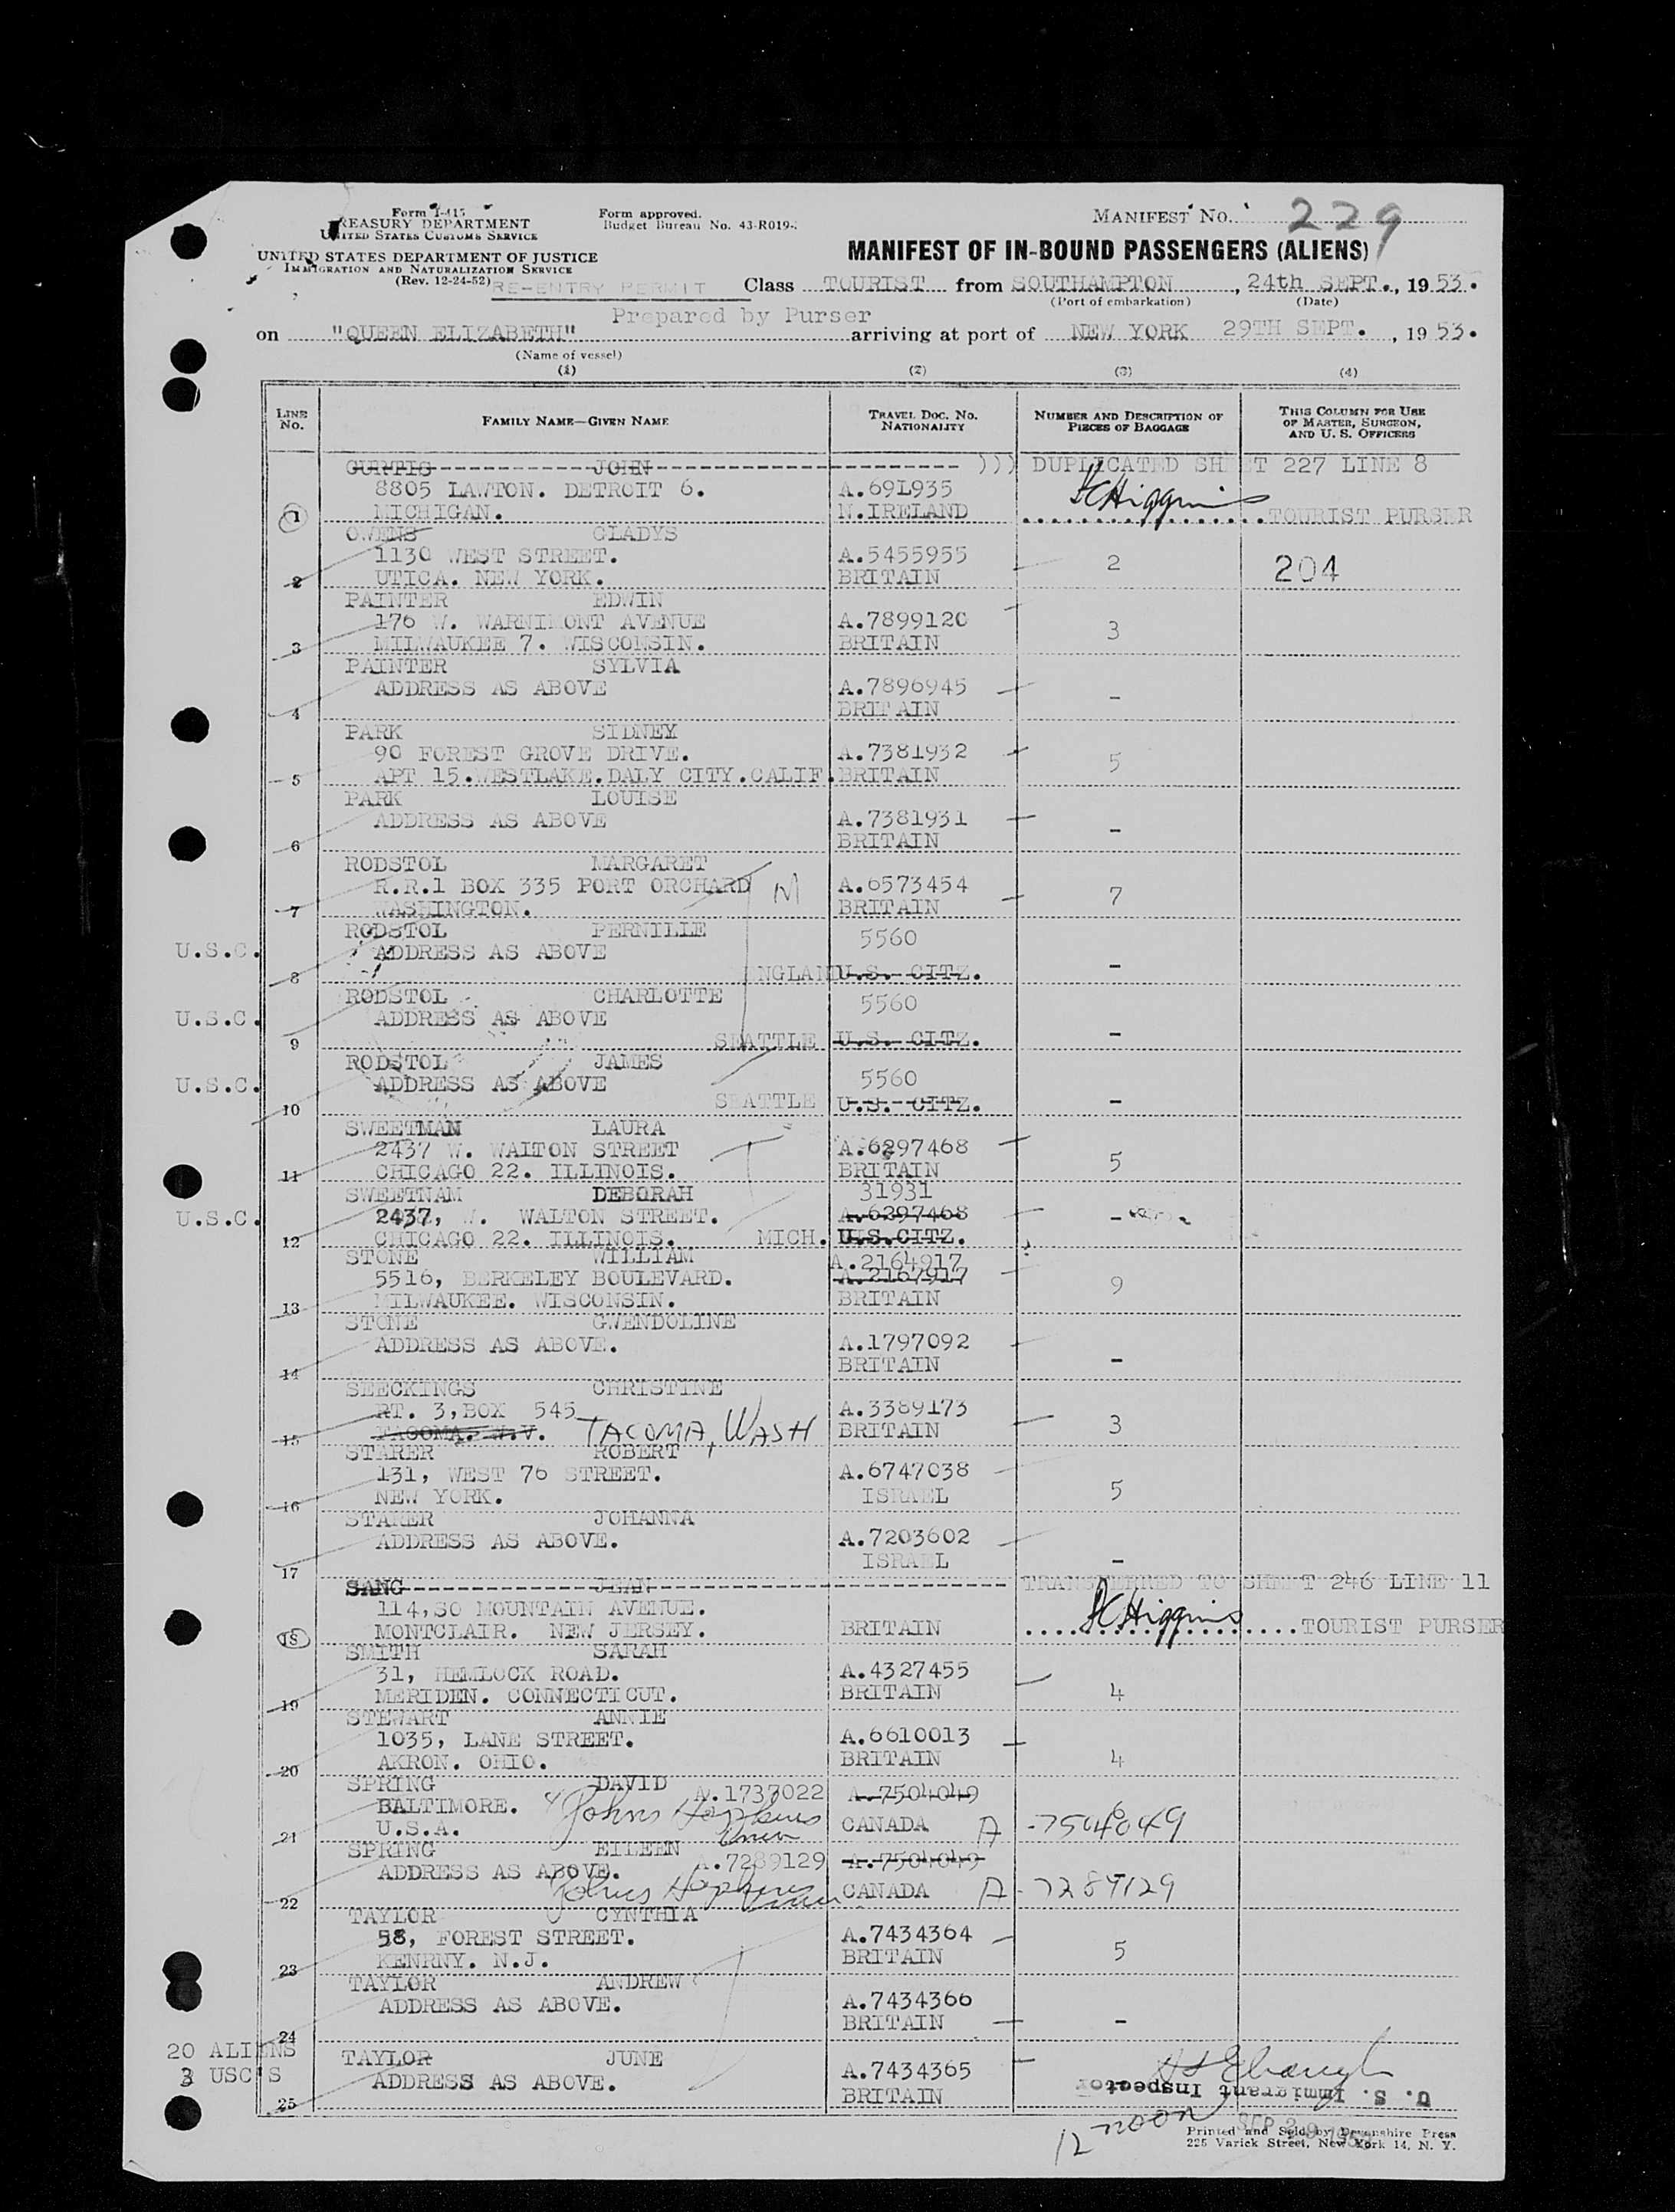 Form I-415
TREASURY DEPARTMENT
UNITED STATES CUSTOMS SERVICE
UNITED STATES DEPARTMENT OF JUSTICE
IMMIGRATION AND NATURALIZATION SERVICE
(Rev. 12-24-52)
RE-ENTRY PERMIT
Form approved.
Budget Bureau No. 43-R019-
MANIFEST NO. 229
MANIFEST OF IN-BOUND PASSENGERS (ALIENS)
Class TOURIST from SOUTHAMPTON, 24th SEPT., 1953.
(Port of embarkation) (Date)
Prepared by Purser
on "QUEEN ELIZABETH" arriving at port of NEW YORK 29TH SEPT., 1953.
(Name of vessel)
(1) (2) (3) (4)
LINE NO. FAMILY NAME—GIVEN NAME TRAVEL DOC. NO. NATIONALITY NUMBER AND DESCRIPTION OF PIECES OF BAGGAGE THIS COLUMN FOR USE OF MASTER, SURGEON, AND U. S. OFFICERS
CURTIS JOHN ))) DUPLICATED SHEET 227 LINE 8
8805 LAWTON. DETROIT 6. A.69L935 Higgins
1 MICHIGAN. N.IRELAND TOURIST PURSER
OWENS GLADYS
1130 WEST STREET. A.5455955 2 204
2 UTICA. NEW YORK. BRITAIN
PAINTER EDWIN
176 W. WARNIMONT AVENUE A.7899120 3
3 MILWAUKEE 7. WISCONSIN. BRITAIN
PAINTER SYLVIA
ADDRESS AS ABOVE A.7896945 -
4 BRITAIN
PARK SIDNEY
90 FOREST GROVE DRIVE. A.7381932 5
5 APT 15.WESTLAKE.DALY CITY.CALIF. BRITAIN
PARK LOUISE
ADDRESS AS ABOVE A.7381931 -
6 BRITAIN
RODSTOL MARGARET
R.R.1 BOX 335 PORT ORCHARD M A.6573454 7
7 WASHINGTON. BRITAIN
RODSTOL PERNILLE 5560
U.S.C. ADDRESS AS ABOVE
8 ENGLAND U.S. CITZ. -
RODSTOL CHARLOTTE 5560
U.S.C. ADDRESS AS ABOVE
9 SEATTLE U.S. CITZ. -
RODSTOL JAMES
U.S.C. ADDRESS AS ABOVE 5560
10 SEATTLE U.S. CITZ. -
SWEETMAN LAURA
2437 W. WALTON STREET A.6297468 5
11 CHICAGO 22. ILLINOIS. BRITAIN
SWEETNAM DEBORAH 31931
U.S.C. 2437, W. WALTON STREET. A.6297468 -
12 CHICAGO 22. ILLINOIS. MICH. U.S.CITZ.
STONE WILLIAM A.2164917
5516, BERKELEY BOULEVARD. A.2167917 9
13 MILWAUKEE. WISCONSIN. BRITAIN
STONE GWENDOLINE
ADDRESS AS ABOVE. A.1797092
14 BRITAIN -
SEECKINGS CHRISTINE
RT. 3,BOX 545 A.3389173 3
15 TACOMA. N.Y. TACOMA, WASH BRITAIN
STARER ROBERT
131, WEST 76 STREET. A.6747038 5
16 NEW YORK. ISRAEL
STARER JOHANNA
ADDRESS AS ABOVE. A.7203602
17 ISRAEL -
SANG JEAN TRANSFERRED TO SHEET 246 LINE 11
114,SO MOUNTAIN AVENUE. Higgins
18 MONTCLAIR. NEW JERSEY. BRITAIN TOURIST PURSER
SMITH SARAH
31, HEMLOCK ROAD. A.4327455 4
19 MERIDEN. CONNECTICUT. BRITAIN
STEWART ANNIE
1035, LANE STREET. A.6610013
20 AKRON. OHIO. BRITAIN 4
SPRING DAVID A.1737022 A.7504049
BALTIMORE. Johns Hopkins
21 U.S.A. Univ CANADA A -7504049
SPRING EILEEN A.7289129 A.7504049
ADDRESS AS ABOVE.
22 Johns Hopkins Univ CANADA A-7289129
TAYLOR CYNTHIA
58, FOREST STREET. A.7434364 5
23 KENRNY. N.J. BRITAIN
TAYLOR ANDREW
ADDRESS AS ABOVE. A.7434366
24 BRITAIN -
20 ALIENS
TAYLOR JUNE
3 USC'S ADDRESS AS ABOVE. A.7434365
25 BRITAIN
U. S. Immigrant Inspector
12 noon
SEP 29 1953
Printed and Sold by Devonshire Press
225 Varick Street, New York 14, N. Y.